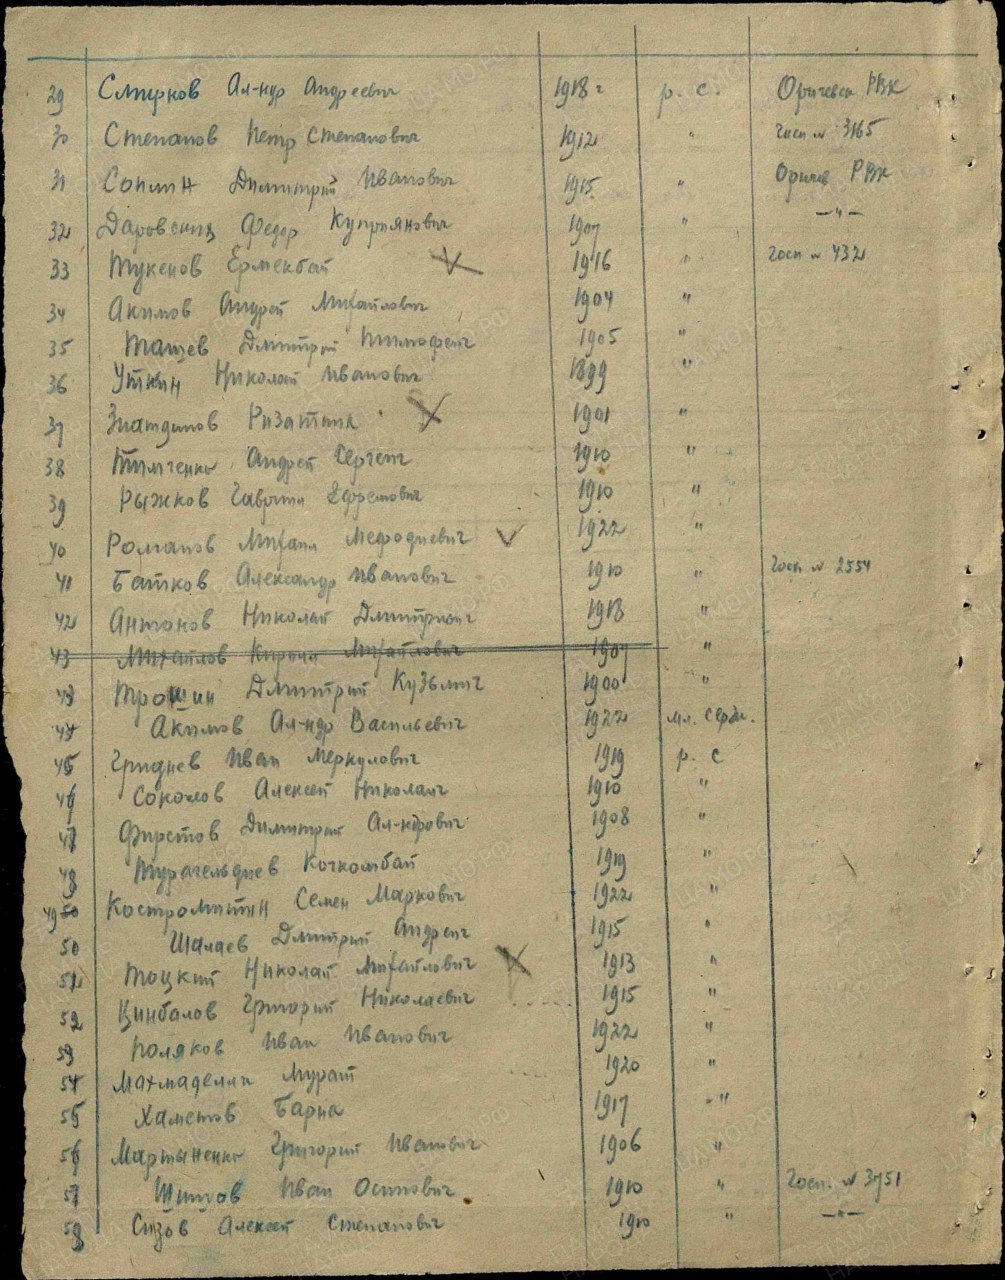 29 Смирнов Ал-ндр Андреевич 1918 г р. с. Оричевск РВК
30 Степанов Петр Степанович 1912 " Госп № 3165
31 Сопин Димитрий Иванович 1915 " Оричев РВК
32 Даровских Федор Куприянович 1907 " —"—
33 Тукенов Ермекбай 1916 " Госп № 4321
34 Акимов Андрей Михайлович 1904 "
35 Тащев Дмитрий Тимофеич 1905 "
36 Уткин Николай Иванович 1899 "
37 Зиатдинов 1901 "
38 Тимченко Андрей Сергеич 1910 "
39 Рыжков Гаврил Ефремович 1910 "
40 Романов Михаил Мефодиевич 1922 "
41 Батков Александр Иванович 1910 " Госп № 2554
42 Антонов Николай Дмитриевич 1918 "
43 Михайлов Кирилл Михайлович 1907 "
43 Трошин Дмитрий Кузьмич 1900 "
44 Акимов Ал-ндр Васильевич 1922 мл. серж.
45 Гриднев Иван Меркулович 1919 р. с
46 Соколов Алексей Николаич 1910 "
47 Фирстов Димитрий Ал-ндрович 1908 "
48 Турагельдиев Кочкомбай 1919 "
49 Костромитин Семен Маркович 1922 "
50 Шалаев Дмитрий Андреич 1915 "
51 Тоцкий Николай Михайлович 1913 "
52 Цинбалов Григорий Николаевич 1915 "
53 Поляков Иван Иванович 1922 "
54 Махмаделин Мурат 1920 "
55 Хаметов 1917 "
56 Мартыненко Григорий Иванович 1906 "
57 Шитов Иван Осипович 1910 " Госп. № 3751
58 Сизов Алексей Степанович 1910 " —"—